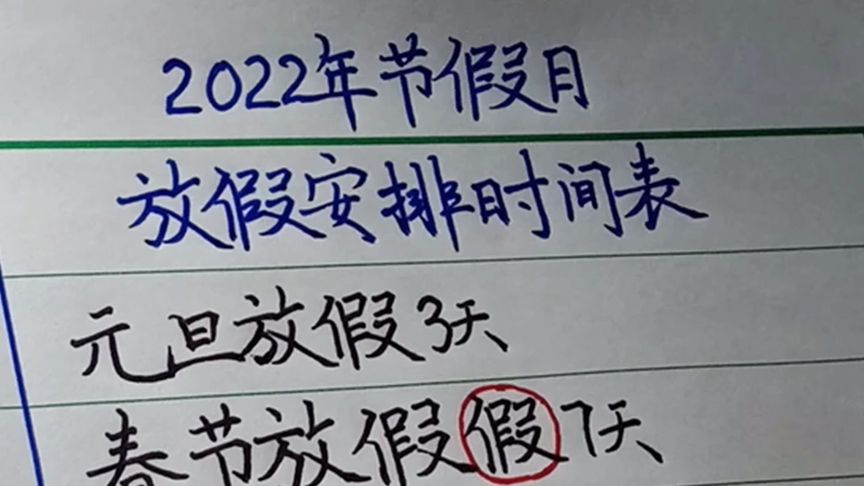 2022年节假日
放假安排时间表
元旦放假3天
春节放假假7天